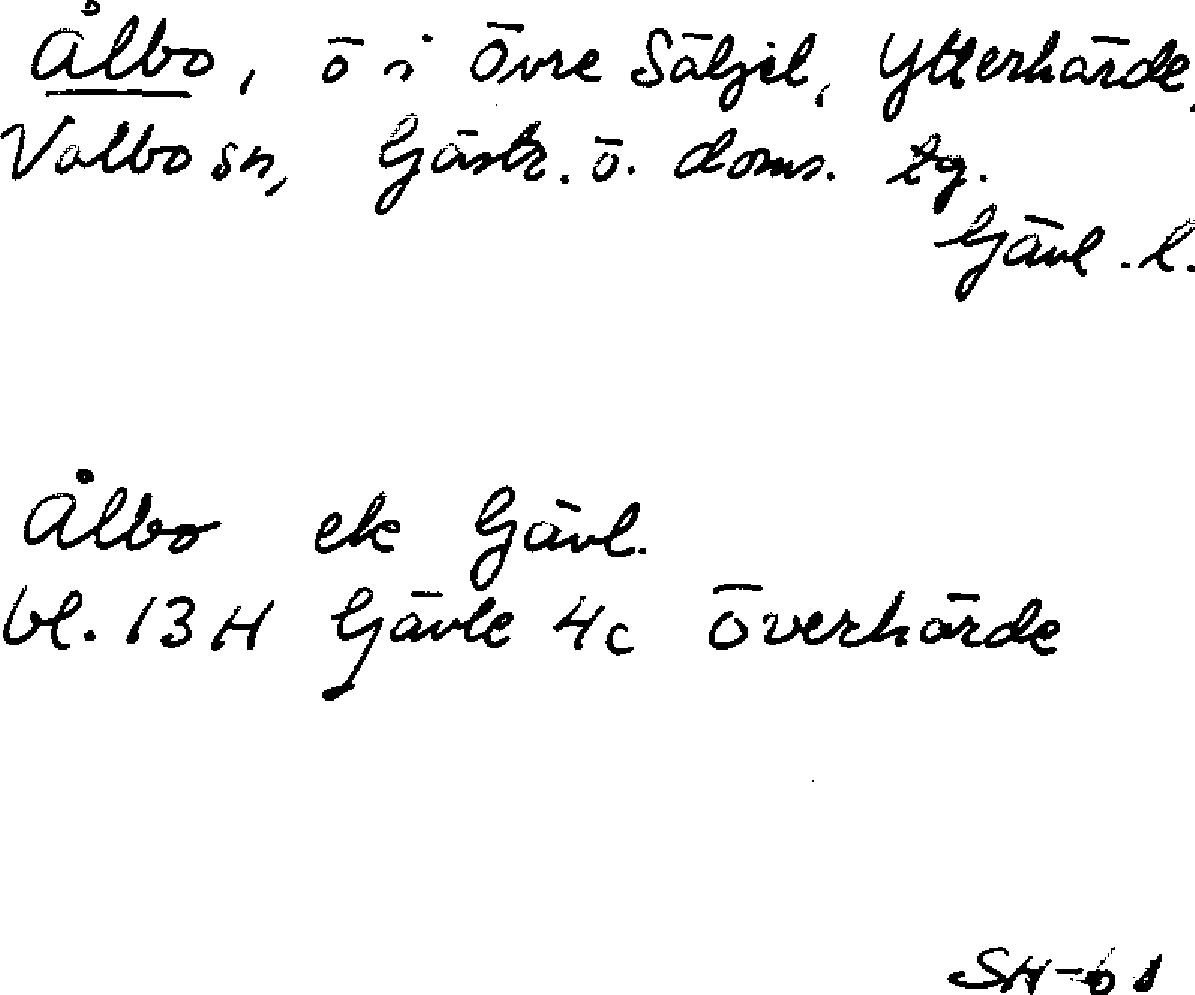 Ålbo, ö i Övre Säljel, Ytterhärde,
Valbo sn, Gästr. ö. doms. tg.
Gävl. l.
Ålbo ek Gävl.
bl. 13 H Gävle 4c Överhärde
SH-61